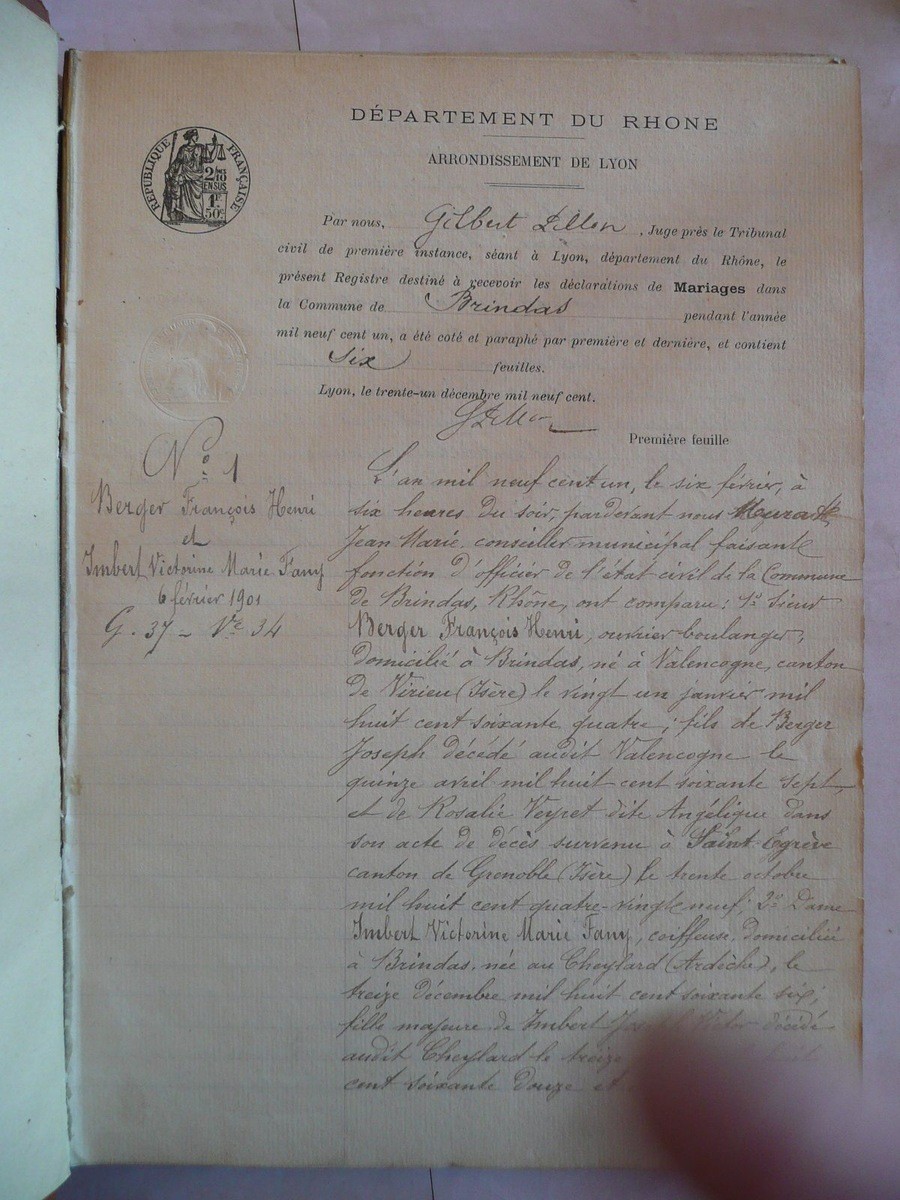 DÉPARTEMENT DU RHONE
ARRONDISSEMENT DE LYON
RÉPUBLIQUE FRANÇAISE
2/10
EN SUS
1F
50c.
Par nous, Gilbert , Juge près le Tribunal
civil de première instance, séant à Lyon, département du Rhône, le
présent Registre destiné à recevoir les déclarations de Mariages dans
la Commune de Brindas pendant l'année
mil neuf cent un, a été coté et paraphé par première et dernière, et contient
Six feuilles.
Lyon, le trente-un décembre mil neuf cent.
Première feuille
No 1
Berger François Henri
et
Imbert Victorine Marie Fany
6 février 1901
G. 37 - Ve 34
L'an mil neuf cent un, le six février, à
six heures du soir, pardevant nous
Jean Marie conseiller municipal faisant
fonction d'officier de l'état civil de la Commune
de Brindas, Rhône, ont comparu: 1° Sieur
Berger François Henri, ouvrier boulanger,
domicilié à Brindas, né à Valencogne, canton
de Virieu (Isère) le vingt un janvier mil
huit cent soixante quatre; fils de Berger
Joseph décédé audit Valencogne le
quinze avril mil huit cent soixante sept,
et de Rosalie Veyret dite Angélique dans
son acte de décès survenu à Saint-Egrève
canton de Grenoble (Isère) le trente octobre
mil huit cent quatre-vingt neuf; 2° Dame
Imbert Victorine Marie Fany, coiffeuse, domiciliée
à Brindas, née au Cheylard (Ardèche), le
treize décembre mil huit cent soixante six;
fille majeure de Imbert Joseph Victor décédé
audit Cheylard le treize
cent soixante douze et